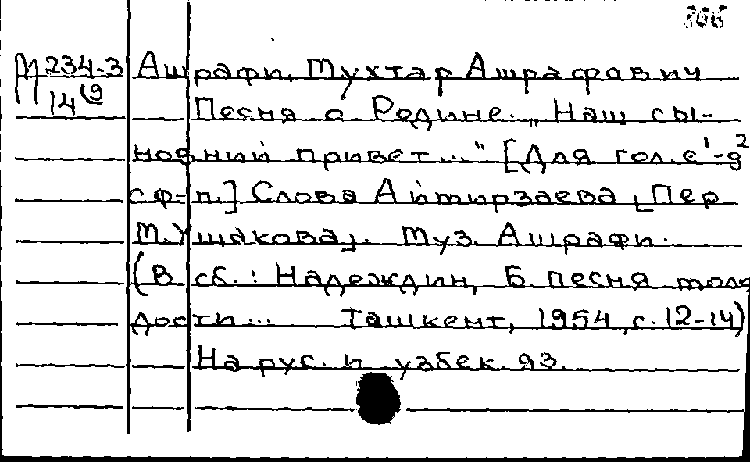 М 234-3 Ашрафи, Мухтар Ашрафович
14(9 Песня о Родине. „Наш сы-
новний привет..." [Для гол. e¹-g²
с ф-п.] Слова А
Пер.
М. Ушакова]. Муз. Ашрафи.
(В сб.: Надеждин, Б. Песня моло
дости... Ташкент, 1954, с. 12-14)
На рус. и узбек. яз.